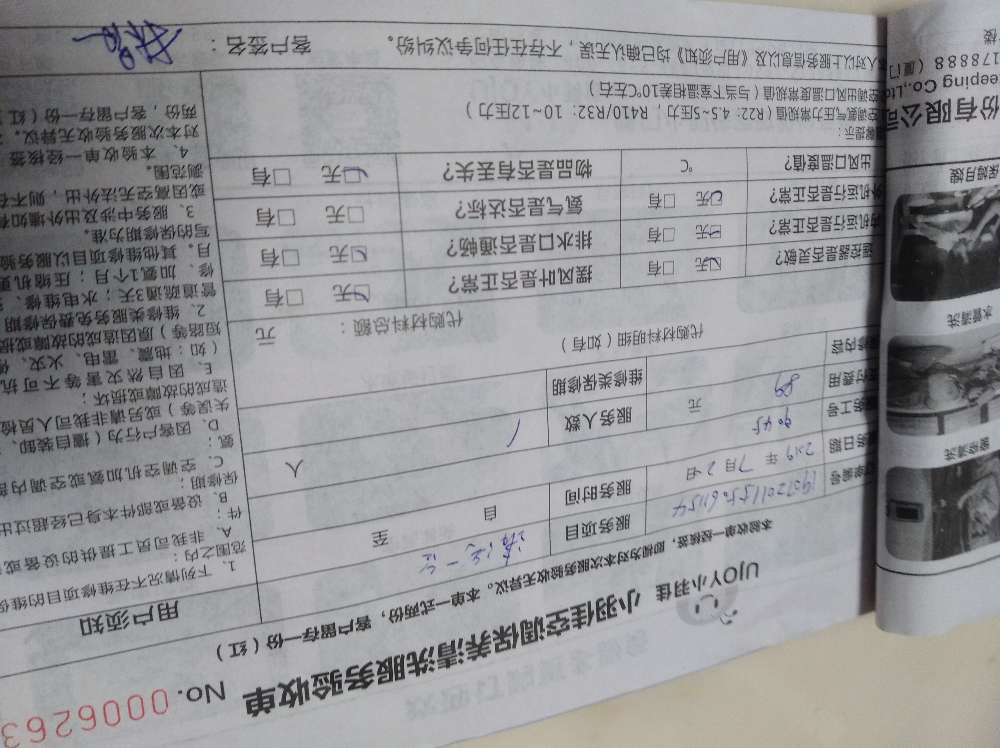 小羽佳空调保养清洗服务验收单 No. 0006263
UJOY小羽佳
本验收单一经签核，即视为对本次服务验收无异议。本单一式两份，客户留存一份（红）
服务项目
服务日期 2019年7月2日 服务时间 自 至
9045 服务人数 1 人
89 元 维修类保修期
代购材料明细（如有） 代购材料总额： 元
遥控器是否灵敏？ ☑无 □有 摆风叶是否正常？ ☑无 □有
内机运行是否正常？ ☑无 □有 排水口是否通畅？ ☑无 □有
外机运行是否正常？ ☑无 □有 氨气是否达标？ □无 □有
出风口温度值？ ℃ 物品是否有丢失？ ☑无 □有
空调氨气压力常规值（R22：4.5~5压力，R410/R32：10~12压力）
空调出风口温度常规值（与当下室温相差10℃左右）
人对以上服务信息以及《用户须知》均已确认无误，不存在任何争议纠纷。 客户签名：
用户须知
1. 下列情况不在维修项目的维保
范围之内：
A、非我司员工提供的设备或
件；
B、设备或部件本身已经超过出
保修期；
C、空调空机加氨或空调内部
氨；
D、因客户行为（擅自装卸、
失误等）或另请非我司人员检
造成的故障或损坏；
E、因自然灾害等不可抗
（如：地震、雷电、火灾、
短路等）原因造成的故障或损
2、维修类服务免费保修期
管道疏通3天；水电维修、
修、加氨1个月；压缩机更
月。其他维修项目以服务验
写的保修期为准。
3、服务中涉及出外墙如有
或因高空无法外出，则不在
测范围。
4、本验收单一经签核
对本次服务验收无异议。
两份，客户留存一份（红
份有限公司
eeping Co.,Ltd
178888（厦门
楼
保姆月嫂
水管清洗